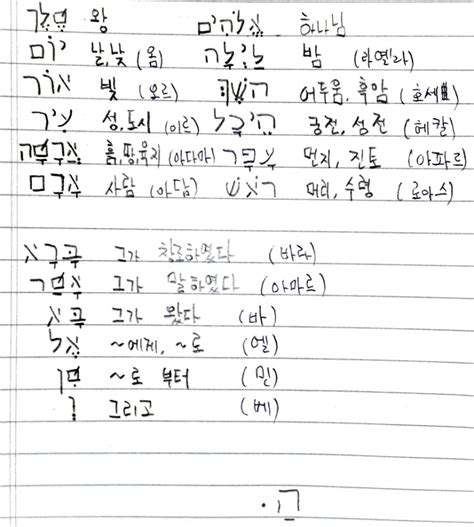 מֶלֶךְ 왕 אֱלֹהִים 하나님
יוֹם 날,낮 (욤) לַיְלָה 밤 (라옐라)
אוֹר 빛 (오르) חֹשֶׁךְ 어두움, 흑암
עִיר 성,도시 (이르) הֵיכָל 궁전, 성전 (헤칼)
אֲדָמָה 흙,땅,육지 (아다마) עָפָר 먼지, 진토 (아파르)
אָדָם 사람 (아담) רֹאשׁ 머리, 수령 (로아스)
בָּרָא 그가 창조하였다 (바라)
אָמַר 그가 말하였다 (아마르)
בָּא 그가 왔다 (바)
אֶל ~에게, ~로 (엘)
מִן ~로 부터 (민)
וְ 그리고 (베)